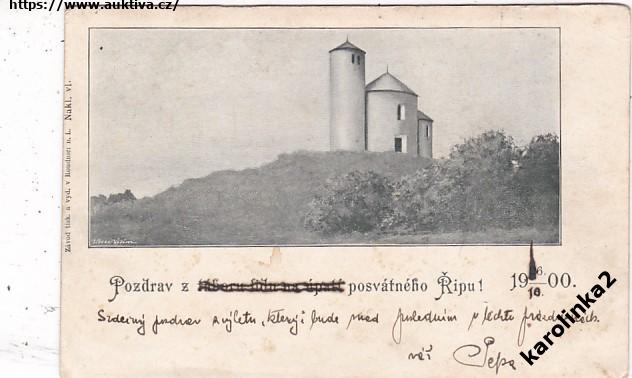 https://www.auktiva.cz/
Závod tisk. a vyd. v Roudnici n. L. Nákl. vl.
Pozdrav z táboru lidu na úpatí posvátného Řipu! 19 16/10. 00.
Srdečný pozdrav z výletu, který bude snad posledním v těchto prázdninách.
váš Pepa
karolinka2